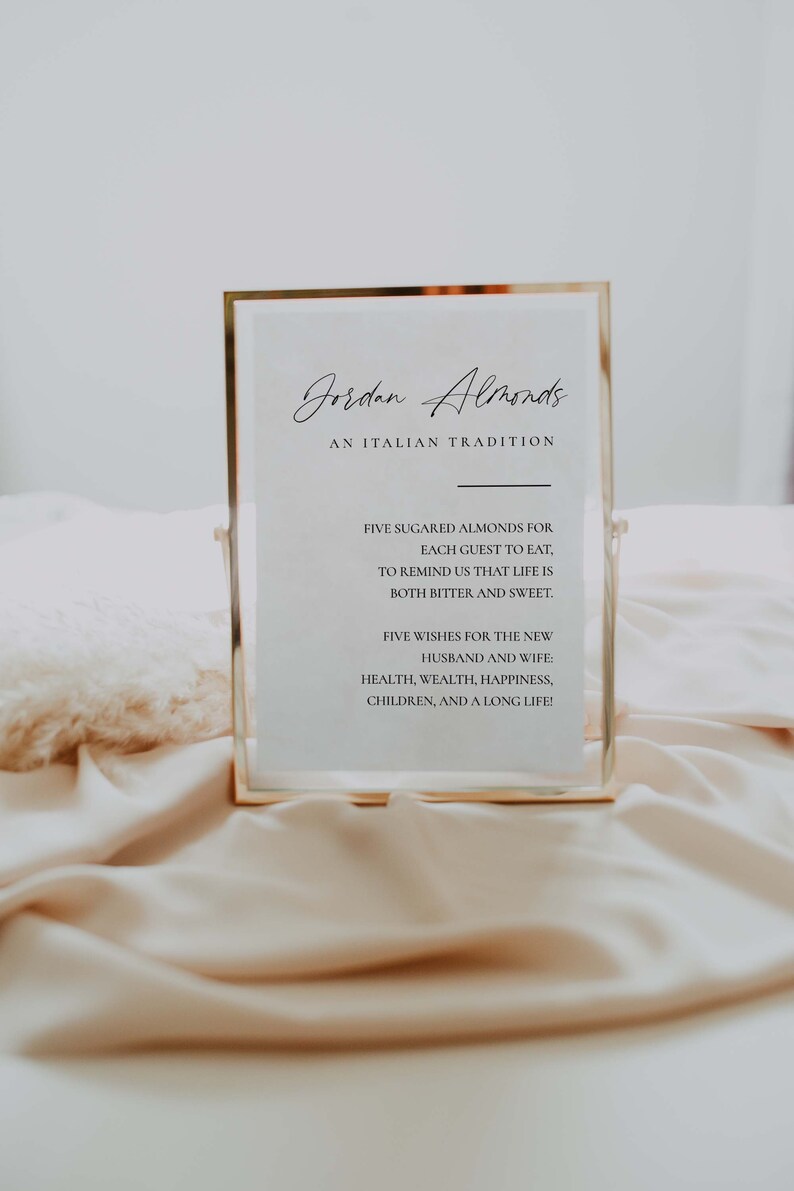 Jordan Almonds
AN ITALIAN TRADITION
FIVE SUGARED ALMONDS FOR
EACH GUEST TO EAT,
TO REMIND US THAT LIFE IS
BOTH BITTER AND SWEET.
FIVE WISHES FOR THE NEW
HUSBAND AND WIFE:
HEALTH, WEALTH, HAPPINESS,
CHILDREN, AND A LONG LIFE!